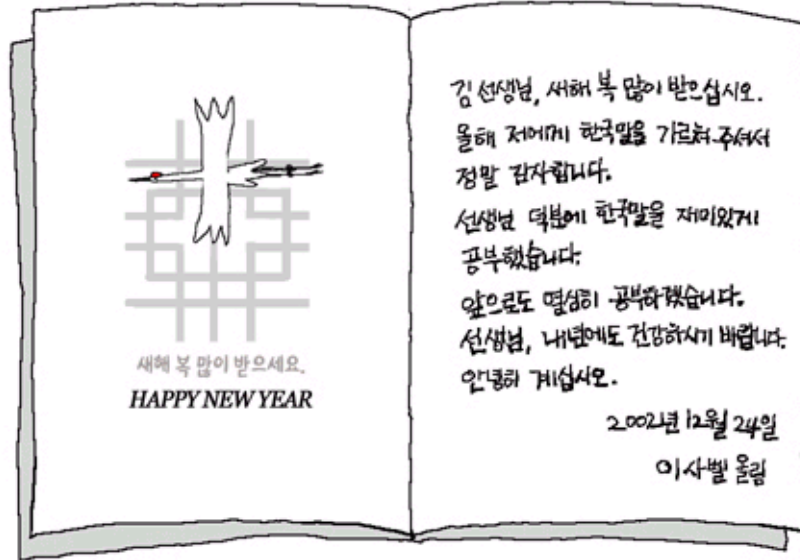 새해 복 많이 받으세요.
HAPPY NEW YEAR
김 선생님, 새해 복 많이 받으십시오.
올해 저에게 한국말을 가르쳐 주셔서
정말 감사합니다.
선생님 덕분에 한국말을 재미있게
공부했습니다.
앞으로도 열심히 공부하겠습니다.
선생님, 내년에도 건강하시기 바랍니다.
안녕히 계십시오.
2002년 12월 24일
이사벨 올림